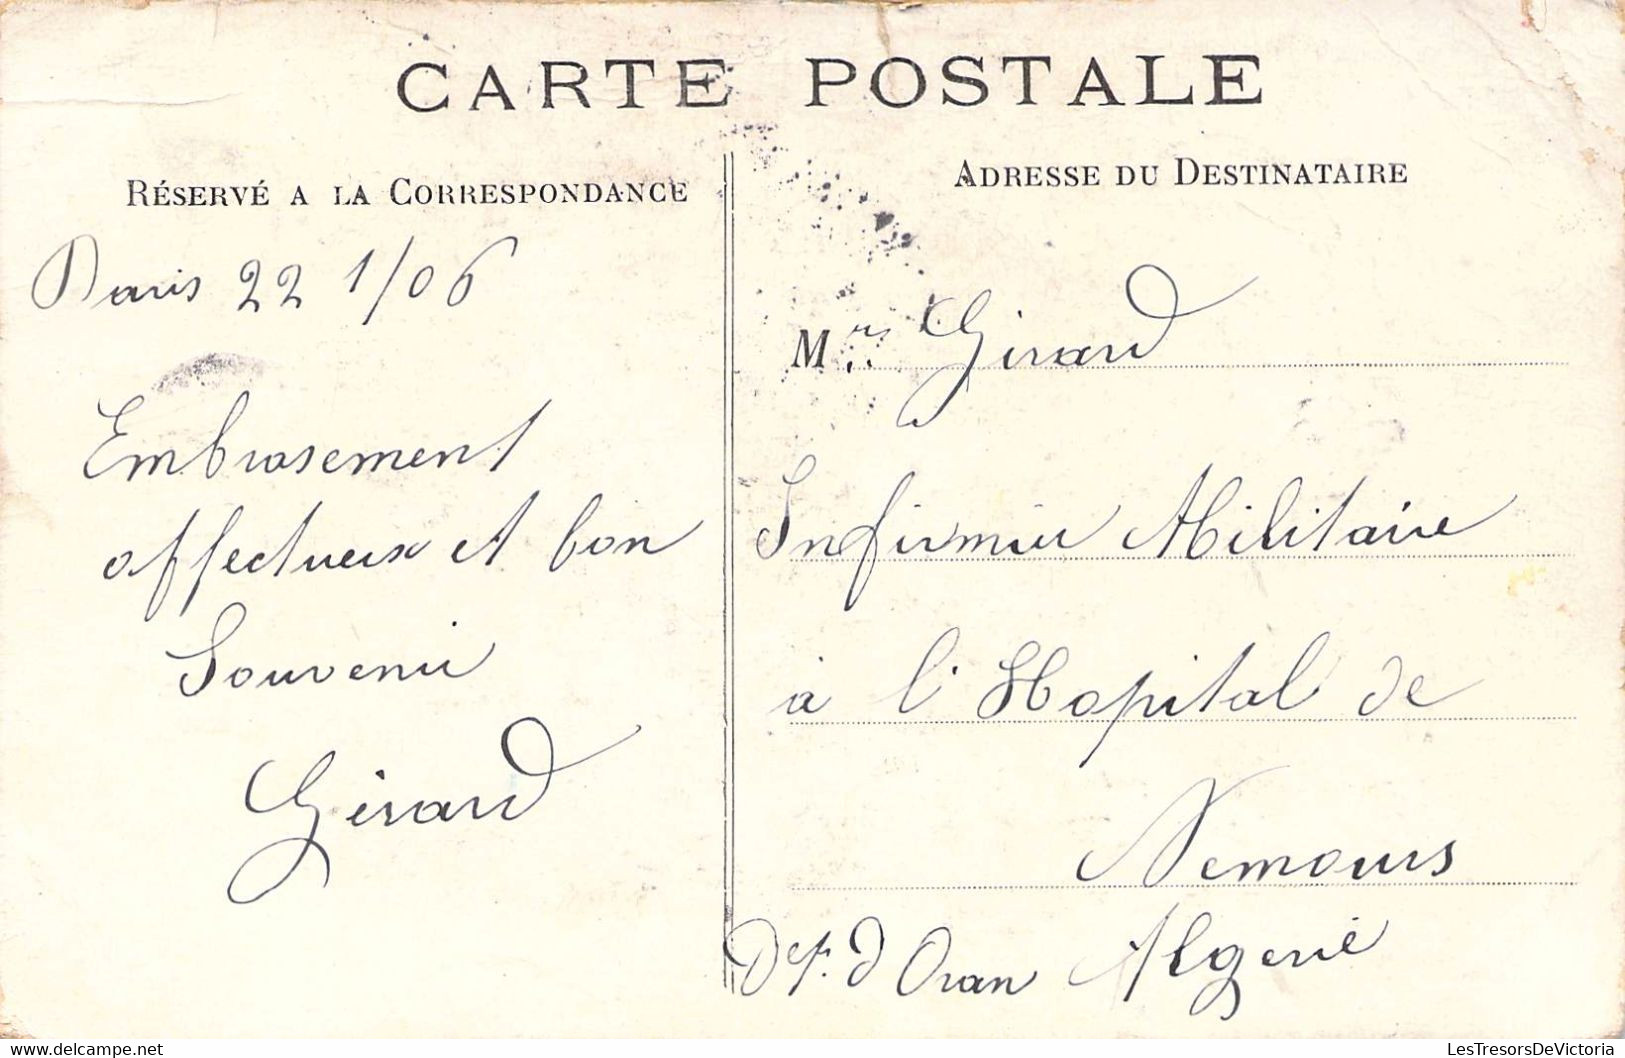 CARTE POSTALE
RÉSERVÉ A LA CORRESPONDANCE
Paris 22 1/06
Embrasement
affectueux et bon
Souvenir
Girard
ADRESSE DU DESTINATAIRE
Mrs Girard
Infirmier Militaire
à l'Hopital de
Nemours
Det. d Oran Algerie
delcampe.net
LesTresorsDeVictoria